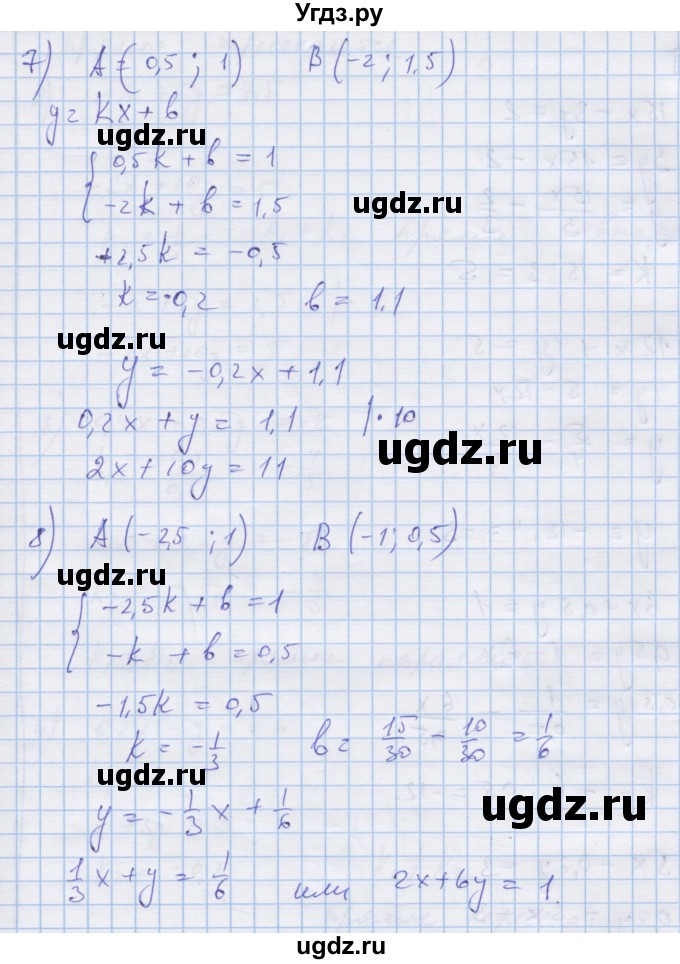 Угдз.ру
7) A = (0,5 ; 1) B (-2 ; 1,5)
y = kx + b
ugdz.ru
{ 0,5k + b = 1
-2k + b = 1,5
ugdz.ru
ugdz.ru
+2,5k = -0,5
k = -0,2 b = 1,1
ugdz.ru
y = -0,2x + 1,1
0,2x + y = 1,1 | · 10
ugdz.ru
2x + 10y = 11
8) A (-2,5 ; 1) B (-1 ; 0,5)
ugdz.ru
ugdz.ru
{ -2,5k + b = 1
-k + b = 0,5
-1,5k = 0,5
k = -1/3 b = 15/30 - 10/30 = 1/6
ugdz.ru
ugdz.ru
y = -1/3 x + 1/6
1/3 x + y = 1/6 или 2x + 6y = 1.
ugdz.ru